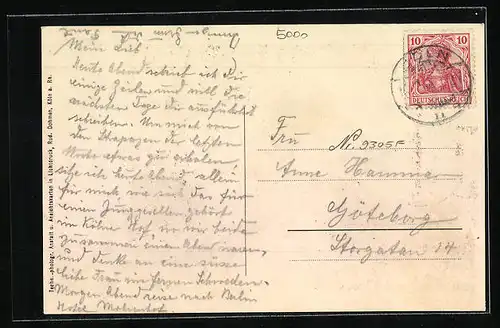 5000
Mein Lieb!
Heute Abend schrieb ich dir
einige Zeilen und will die
nächsten Tage dir ausführlich
schreiben. Um mich von
den Strapazen der letzten
Woche etwas zu erholen,
sitze ich heute Abend allein
für mich wie sich das für
einen Junggesellen gehört
im Kölner Hof wo wir beiden
zusammen einen Abend waren,
und denke an eine süsse
liebe Frau im fernen Schweden.
Morgen Abend reise nach Berlin
Hotel
Frau
N. 9305F
Anne Hammar
Göteborg
Storgatan 14
10 10
DEUTSCHES REICH
CÖLN
Techn.-photogr. Anstalt u. Ansichtskarten in Lichtdruck, Rud. Dehmel, Köln a. Rh.